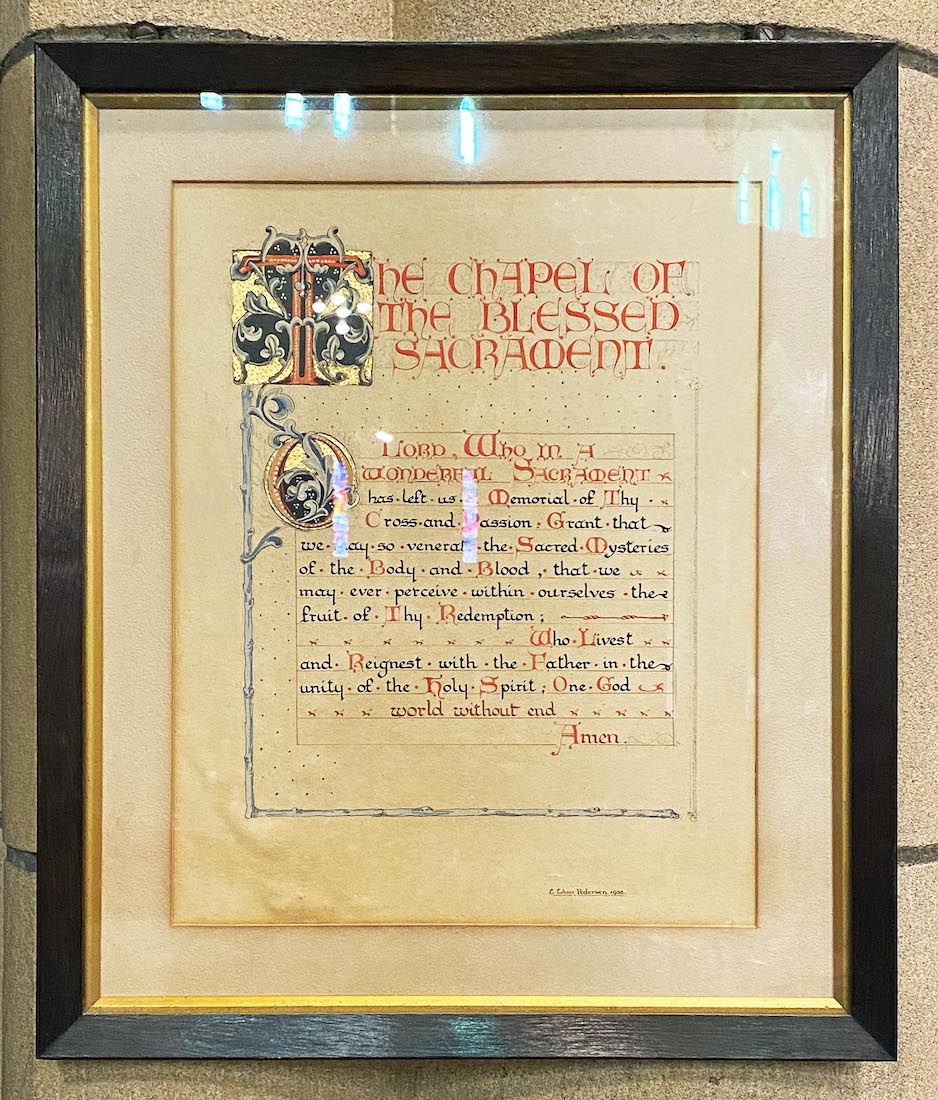 The Chapel of
the Blessed
Sacrament.
O Lord, Who in a
wonderful Sacrament
has·left·us· a Memorial·of·Thy
Cross·and·Passion; Grant·that
we·may·so·venerate·the·Sacred·Mysteries
of·the·Body·and·Blood, that·we
may·ever·perceive·within·ourselves·the
fruit·of·Thy·Redemption;
Who·Livest
and·Reignest·with·the·Father·in·the
unity·of·the·Holy·Spirit; One·God
world without end
Amen.
Pedersen